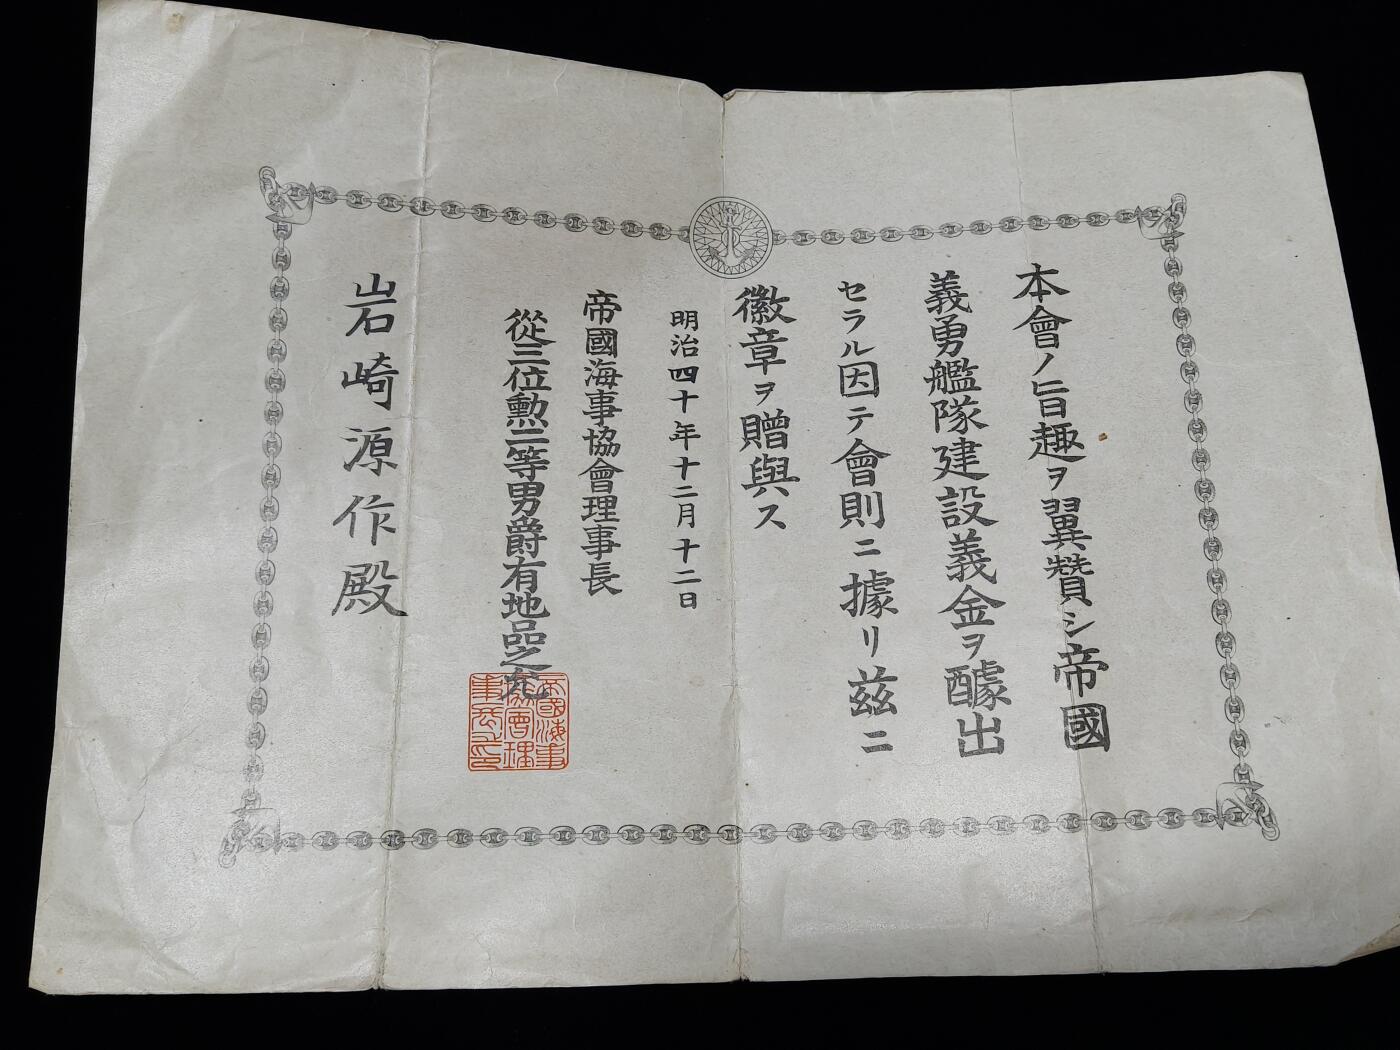 本會ノ旨趣ヲ翼賛シ帝國
義勇艦隊建設義金ヲ醵出
セラル因テ會則ニ據リ茲ニ
徽章ヲ贈與ス
明治四十年十二月十二日
帝國海事協會理事長
從三位勲二等男爵有地品之允
帝國海事
協會理
事長之印
岩崎源作殿